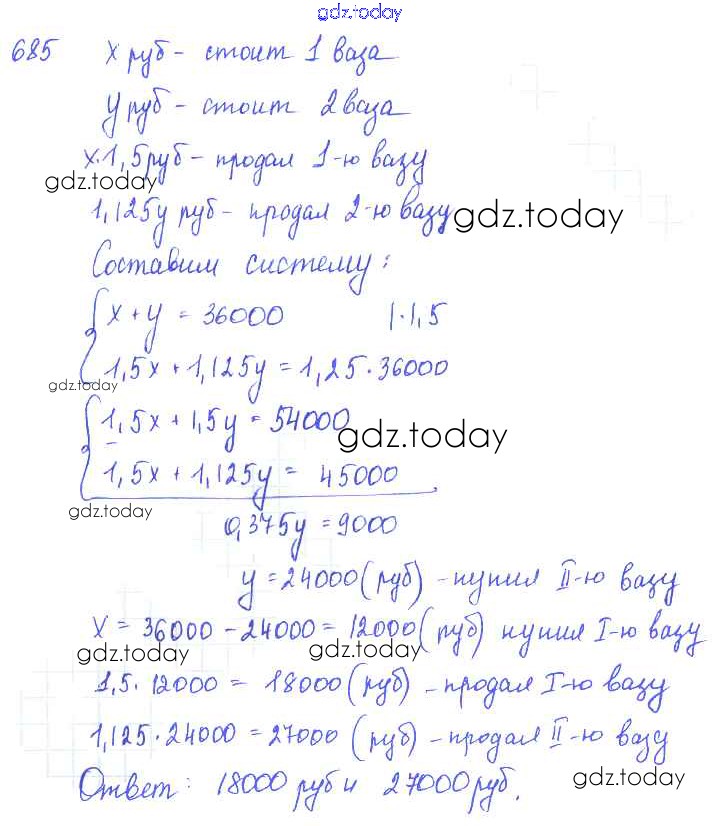 gdz.today
685 х руб - стоит 1 ваза
у руб - стоит 2 ваза
х·1,5 руб - продал 1-ю вазу
gdz.today
1,125у руб - продал 2-ю вазу gdz.today
Составим систему:
х + у = 36000 |·1,5
1,5х + 1,125у = 1,25·36000
gdz.today
1,5х + 1,5у = 54000
gdz.today
- 1,5х + 1,125у = 45000
gdz.today
0,375у = 9000
у = 24000 (руб) - купил II-ю вазу
х = 36000 - 24000 = 12000 (руб) купил I-ю вазу
gdz.today gdz.today gdz.today
1,5 · 12000 = 18000 (руб) - продал I-ю вазу
1,125·24000 = 27000 (руб) - продал II-ю вазу
Ответ: 18000 руб и 27000 руб.
gdz.today